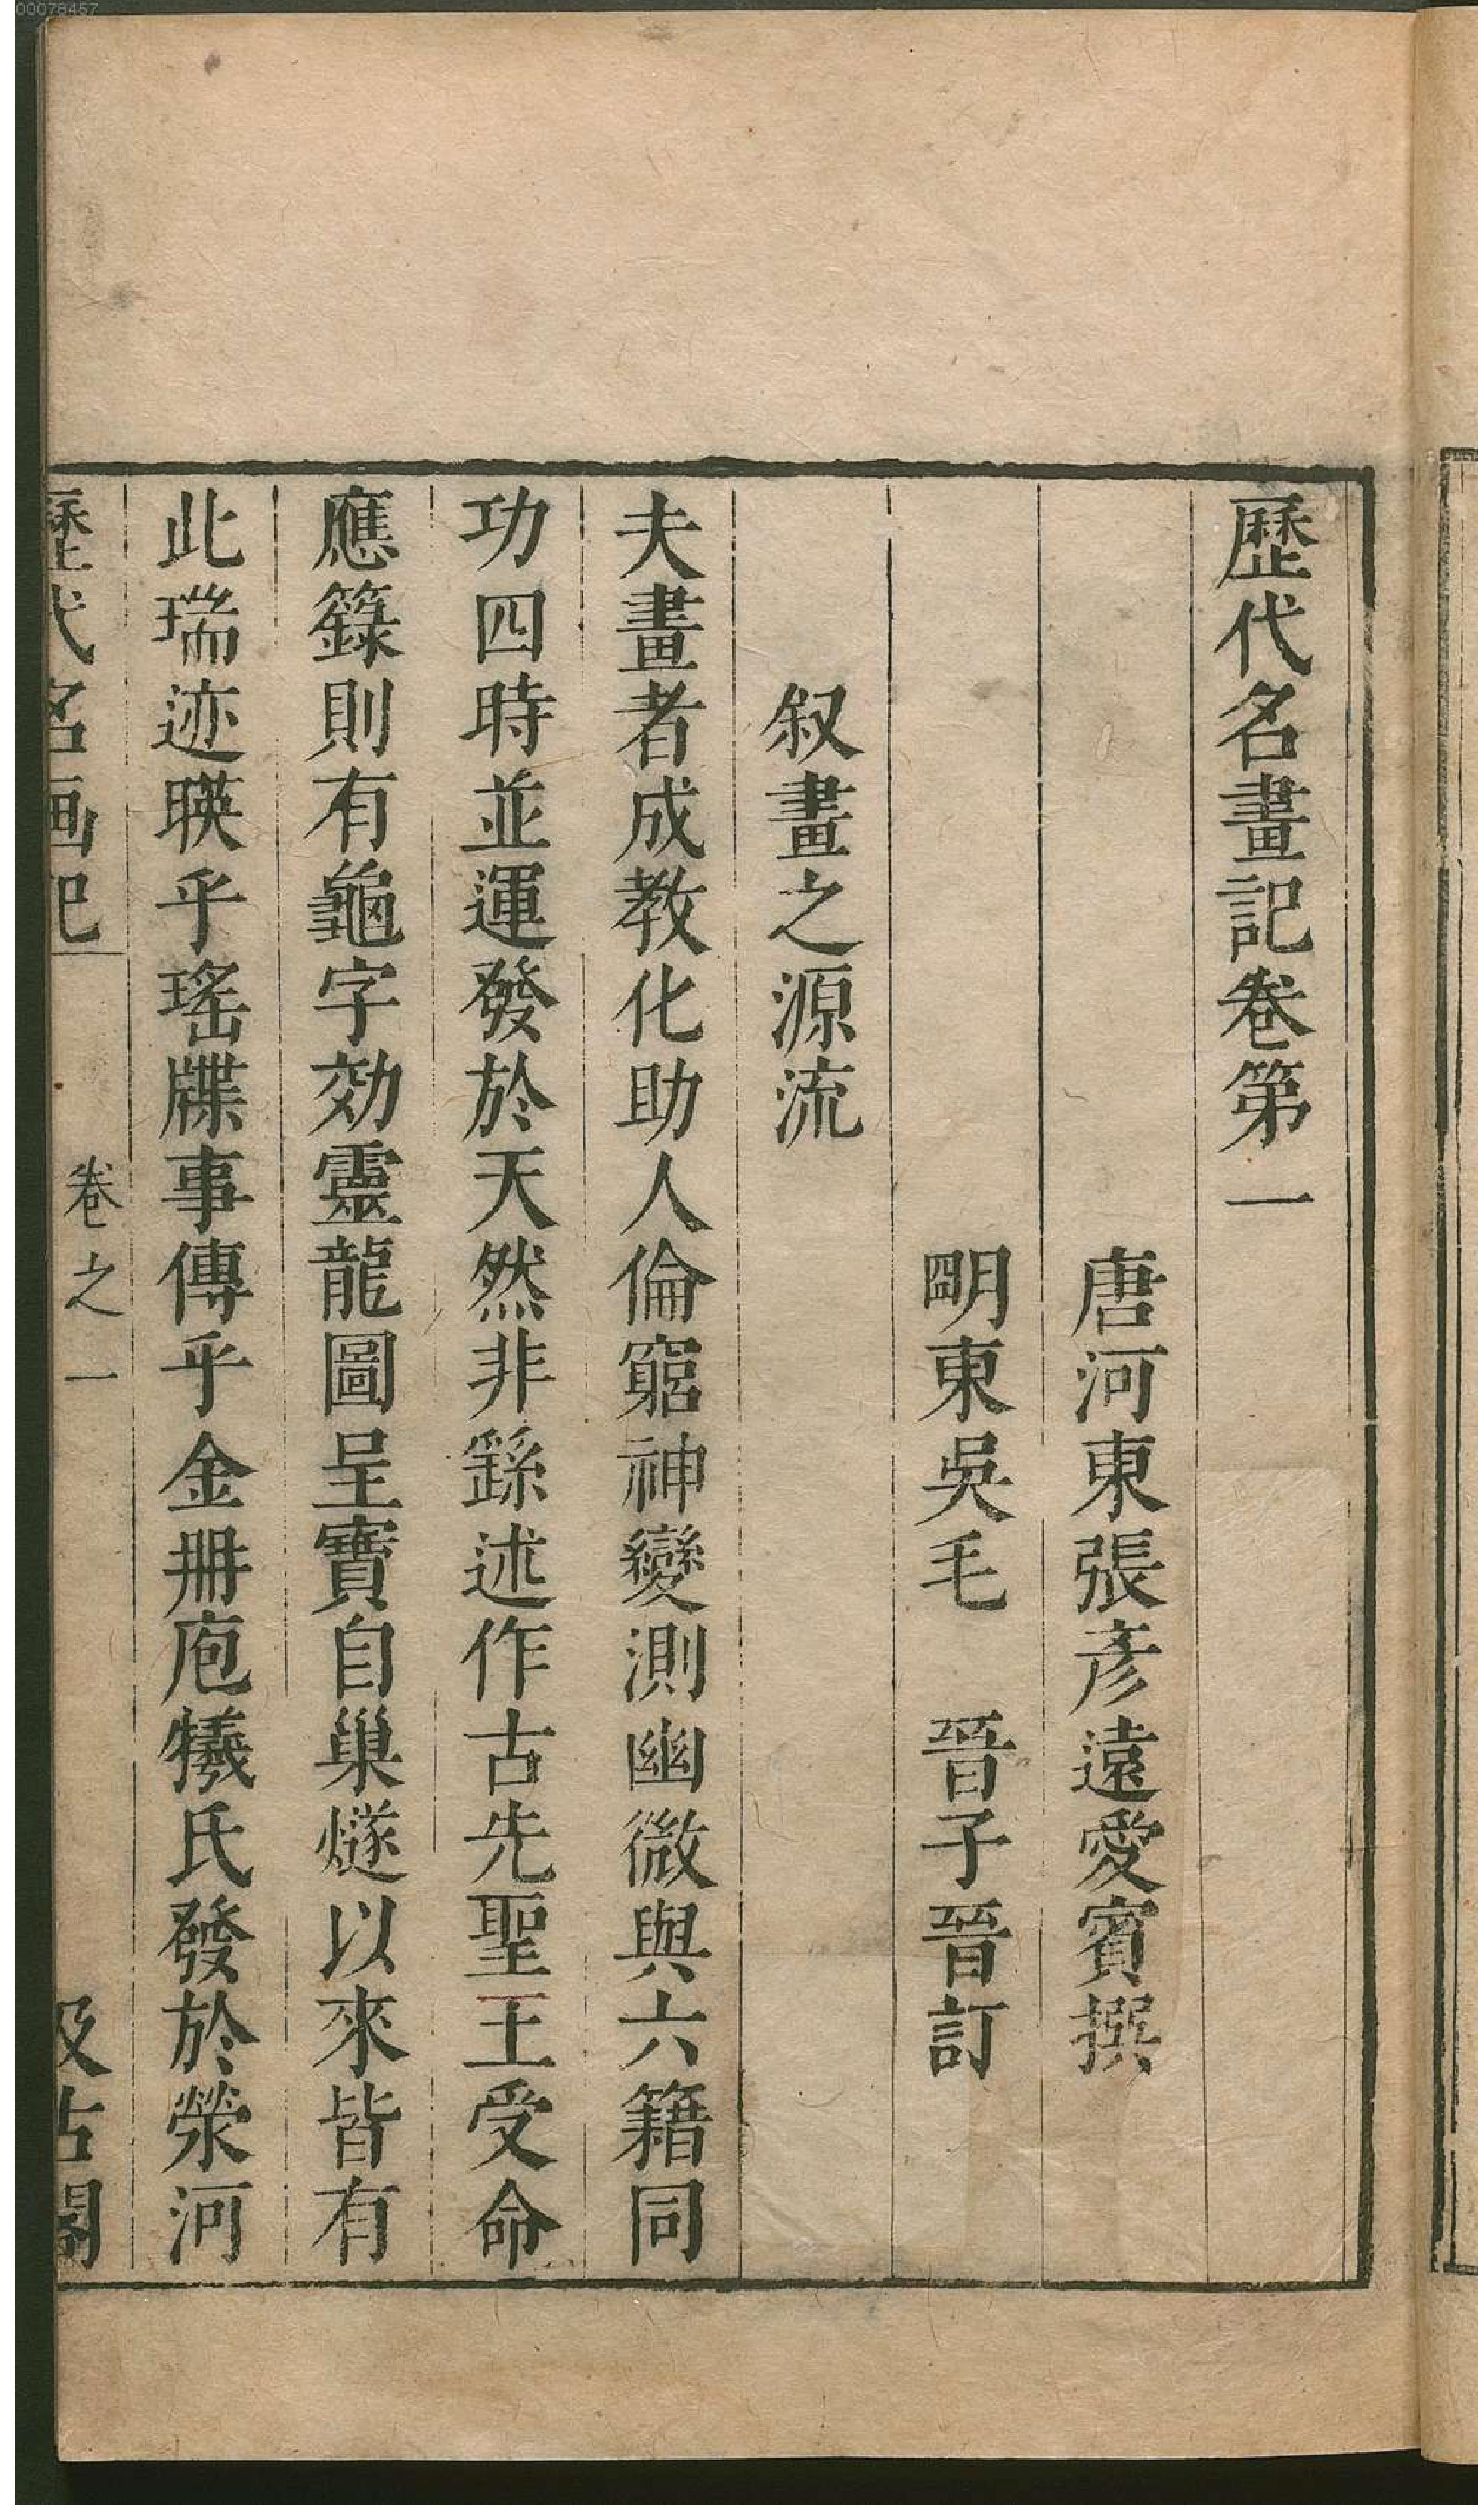 00078457
歷代名畫記卷第一
唐河東張彥遠愛賓撰
明東吳毛　晉子晉訂
叙畫之源流
夫畫者成教化助人倫窮神變測幽微與六籍同
功四時並運發於天然非繇述作古先聖王受命
應籙則有龜字効靈龍圖呈寶自巢燧以來皆有
此瑞迹暎乎瑤牒事傳乎金册庖犧氏發於滎河
歷代名画記　卷之一　汲古閣